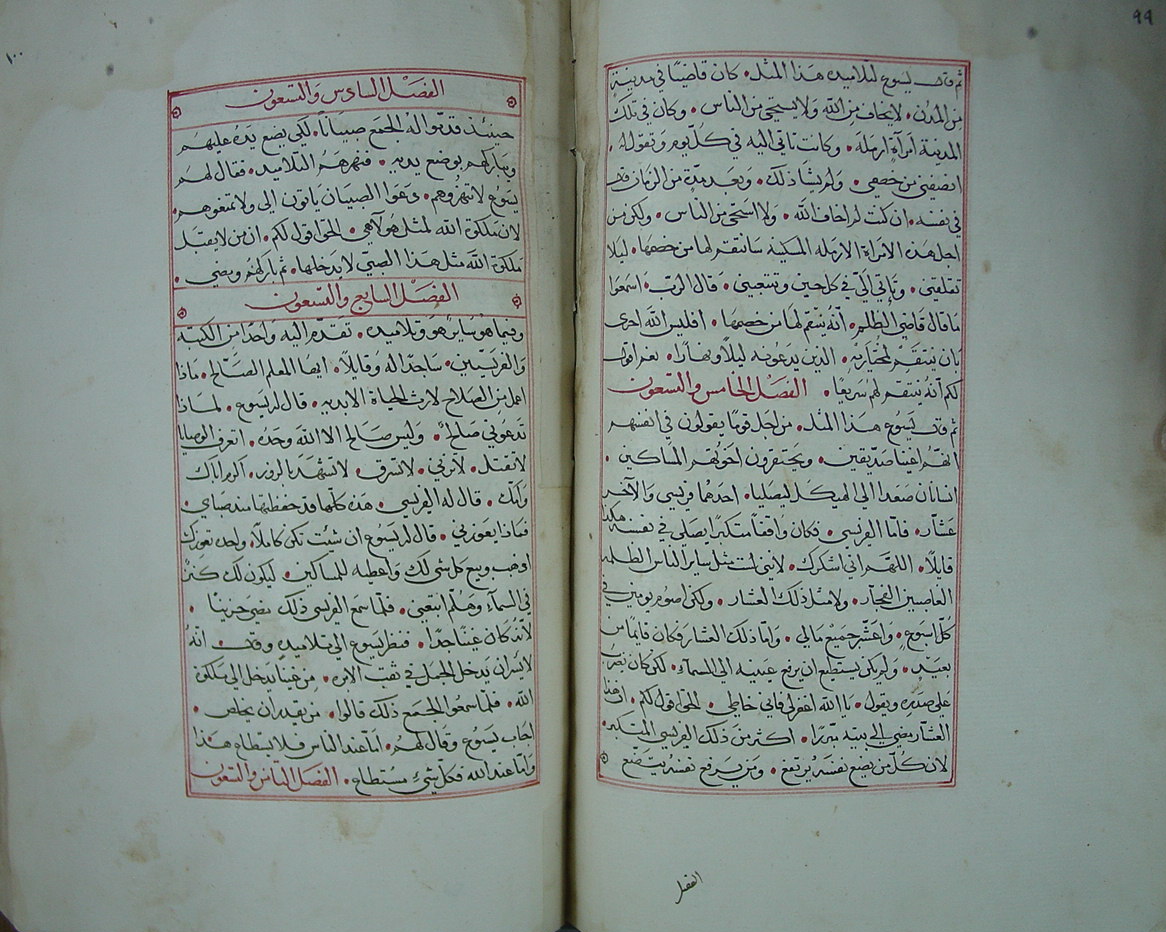 ٩٩
ثم قال يسوع لتلاميذه هذا المثل. كان قاضيًا في مدينة
من المدن. لا يخاف من الله ولا يستحي من الناس. وكان في تلك
المدينة امرأة ارملة. وكانت تاتي اليه في كل يوم وتقول له.
انصفني من خصمي. ولم يشا ذلك. وبعد مدة من الزمان قال
في نفسه. ان كنت لم اخاف الله. ولا استحي من الناس. ولكن من
اجل هذه الامراة الارمله المسكينة سانتقم لها من خصمها. ليلا
تقلقني. وتاتي الي في كل حين وتتعبني. قال الرب. اسمعوا
ما قال قاضي الظلم. انه ينتقم لها من خصمها. افليس الله احرى
بان ينتقم لمختاريه. الذين يدعونه ليلًا ونهارًا. نعم اقول
لكم انه ينتقم لهم سريعًا. الفصل الخامس والتسعون
ثم قال يسوع هذا المثل. من اجل قومًا يقولون في انفسهم
انهم صديقين. ويحتقرون اخوتهم المساكين.
انسانان صعدا الى الهيكل ليصليا. احدهما فريسي والآخر
عشار. فاما الفريسي. فكان واقفًا متكبرًا يصلي في نفسه هكذا
قايلًا. اللهم اني اشكرك. لانني لست مثل ساير الناس الظلمه
الغاصبين الفجار. ولا مثل ذلك العشار. ولكن اصوم يومين في
كل اسبوع. واعشر جميع مالي. واما ذلك العشار فكان قايمًا من
بعيد. ولم يكن يستطيع ان يرفع عينيه الى السماء. لكن كان يضرب
على صدره ويقول. يا الله اغفر لي فاني خاطي. الحق اقول لكم. ان هذا
العشار مضى الى بيته مبررًا. اكثر من ذلك الفريسي المتكبر.
لان كل من يضع نفسه يرتفع. ومن يرفع نفسه يتضع
الفصل
١٠٠
الفصل السادس والتسعون
حينئذ قدموا له الجمع صبيانًا. لكي يضع يده عليهم
ويباركهم بوضع يديه. فنهرهم التلاميذ. فقال لهم
يسوع لا تنهروهم. دعوا الصبيان ياتون الي ولا تمنعوهم
لان ملكوة الله لمثل هولآء هي. الحق اقول لكم. ان من لا يقبل
ملكوة الله مثل هذا الصبي لا يدخلها. ثم باركهم ومضي.
الفصل السابع والتسعون
وفيما هو سايرًا هو وتلاميذه. تقدم اليه واحدًا من الكتبة
والفريسيين. ساجدًا له وقايلًا. ايها المعلم الصالح. ماذا
اعمل من الصلاح لارث الحياة الابديه. قال له يسوع. لماذا
تدعوني صالح. وليس صالح الا الله وحده. اتعرف الوصايا
لا تقتل. لا تزني. لا تسرق. لا تشهد بالزور. اكرم اباك
وامك. قال له الفريسي. هذه كلها قد حفظتها منذ صباي.
فماذا يعوزني. قال له يسوع ان شئت تكن كاملًا. واحده تعوزك
اذهب وبيع كل شي لك واعطيه للمساكين. ليكون لك كنز
في السماء وهلم اتبعني. فلما سمع الفريسي ذلك مضي حزينًا.
لانه كان غنيًا جدًا. فنظر يسوع الى تلاميذه وقال. انه
لايسر ان يدخل الجمل في ثقب الابره. من غنيًا يدخل الى ملكوة
الله. فلما سمعوا الجمع ذلك قالوا. من يقدر ان يخلص.
اجاب يسوع وقال لهم. اما عند الناس فلا يستطاع هذا
واما عند الله فكل شيء مستطاع. الفصل الثامن والتسعون